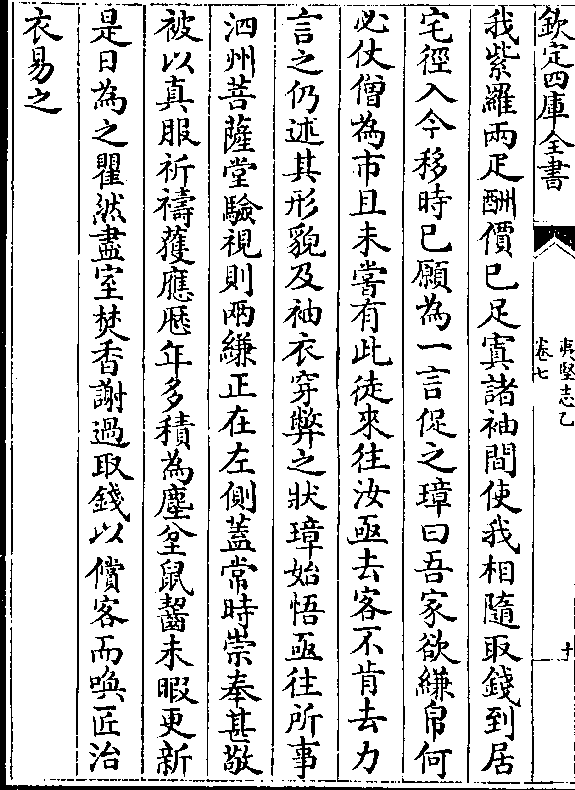 欽定四庫全書
夷堅志乙
卷七
十
我紫羅兩疋酬價已足寘諸袖間使我相隨取錢到居
宅徑入今移時已願為一言促之璋曰吾家欲縑帛何
必仗僧為市且未嘗有此徒來往汝亟去客不肯去力
言之仍述其形貌及袖衣穿弊之狀璋始悟亟往所事
泗州菩薩堂驗視則兩縑正在左側蓋常時崇奉甚敬
被以真服祈禱蒦應歴年多積為塵坌鼠齧未暇更新
是日為之瞿然盡室焚香謝過取錢以償客而喚匠治
衣易之